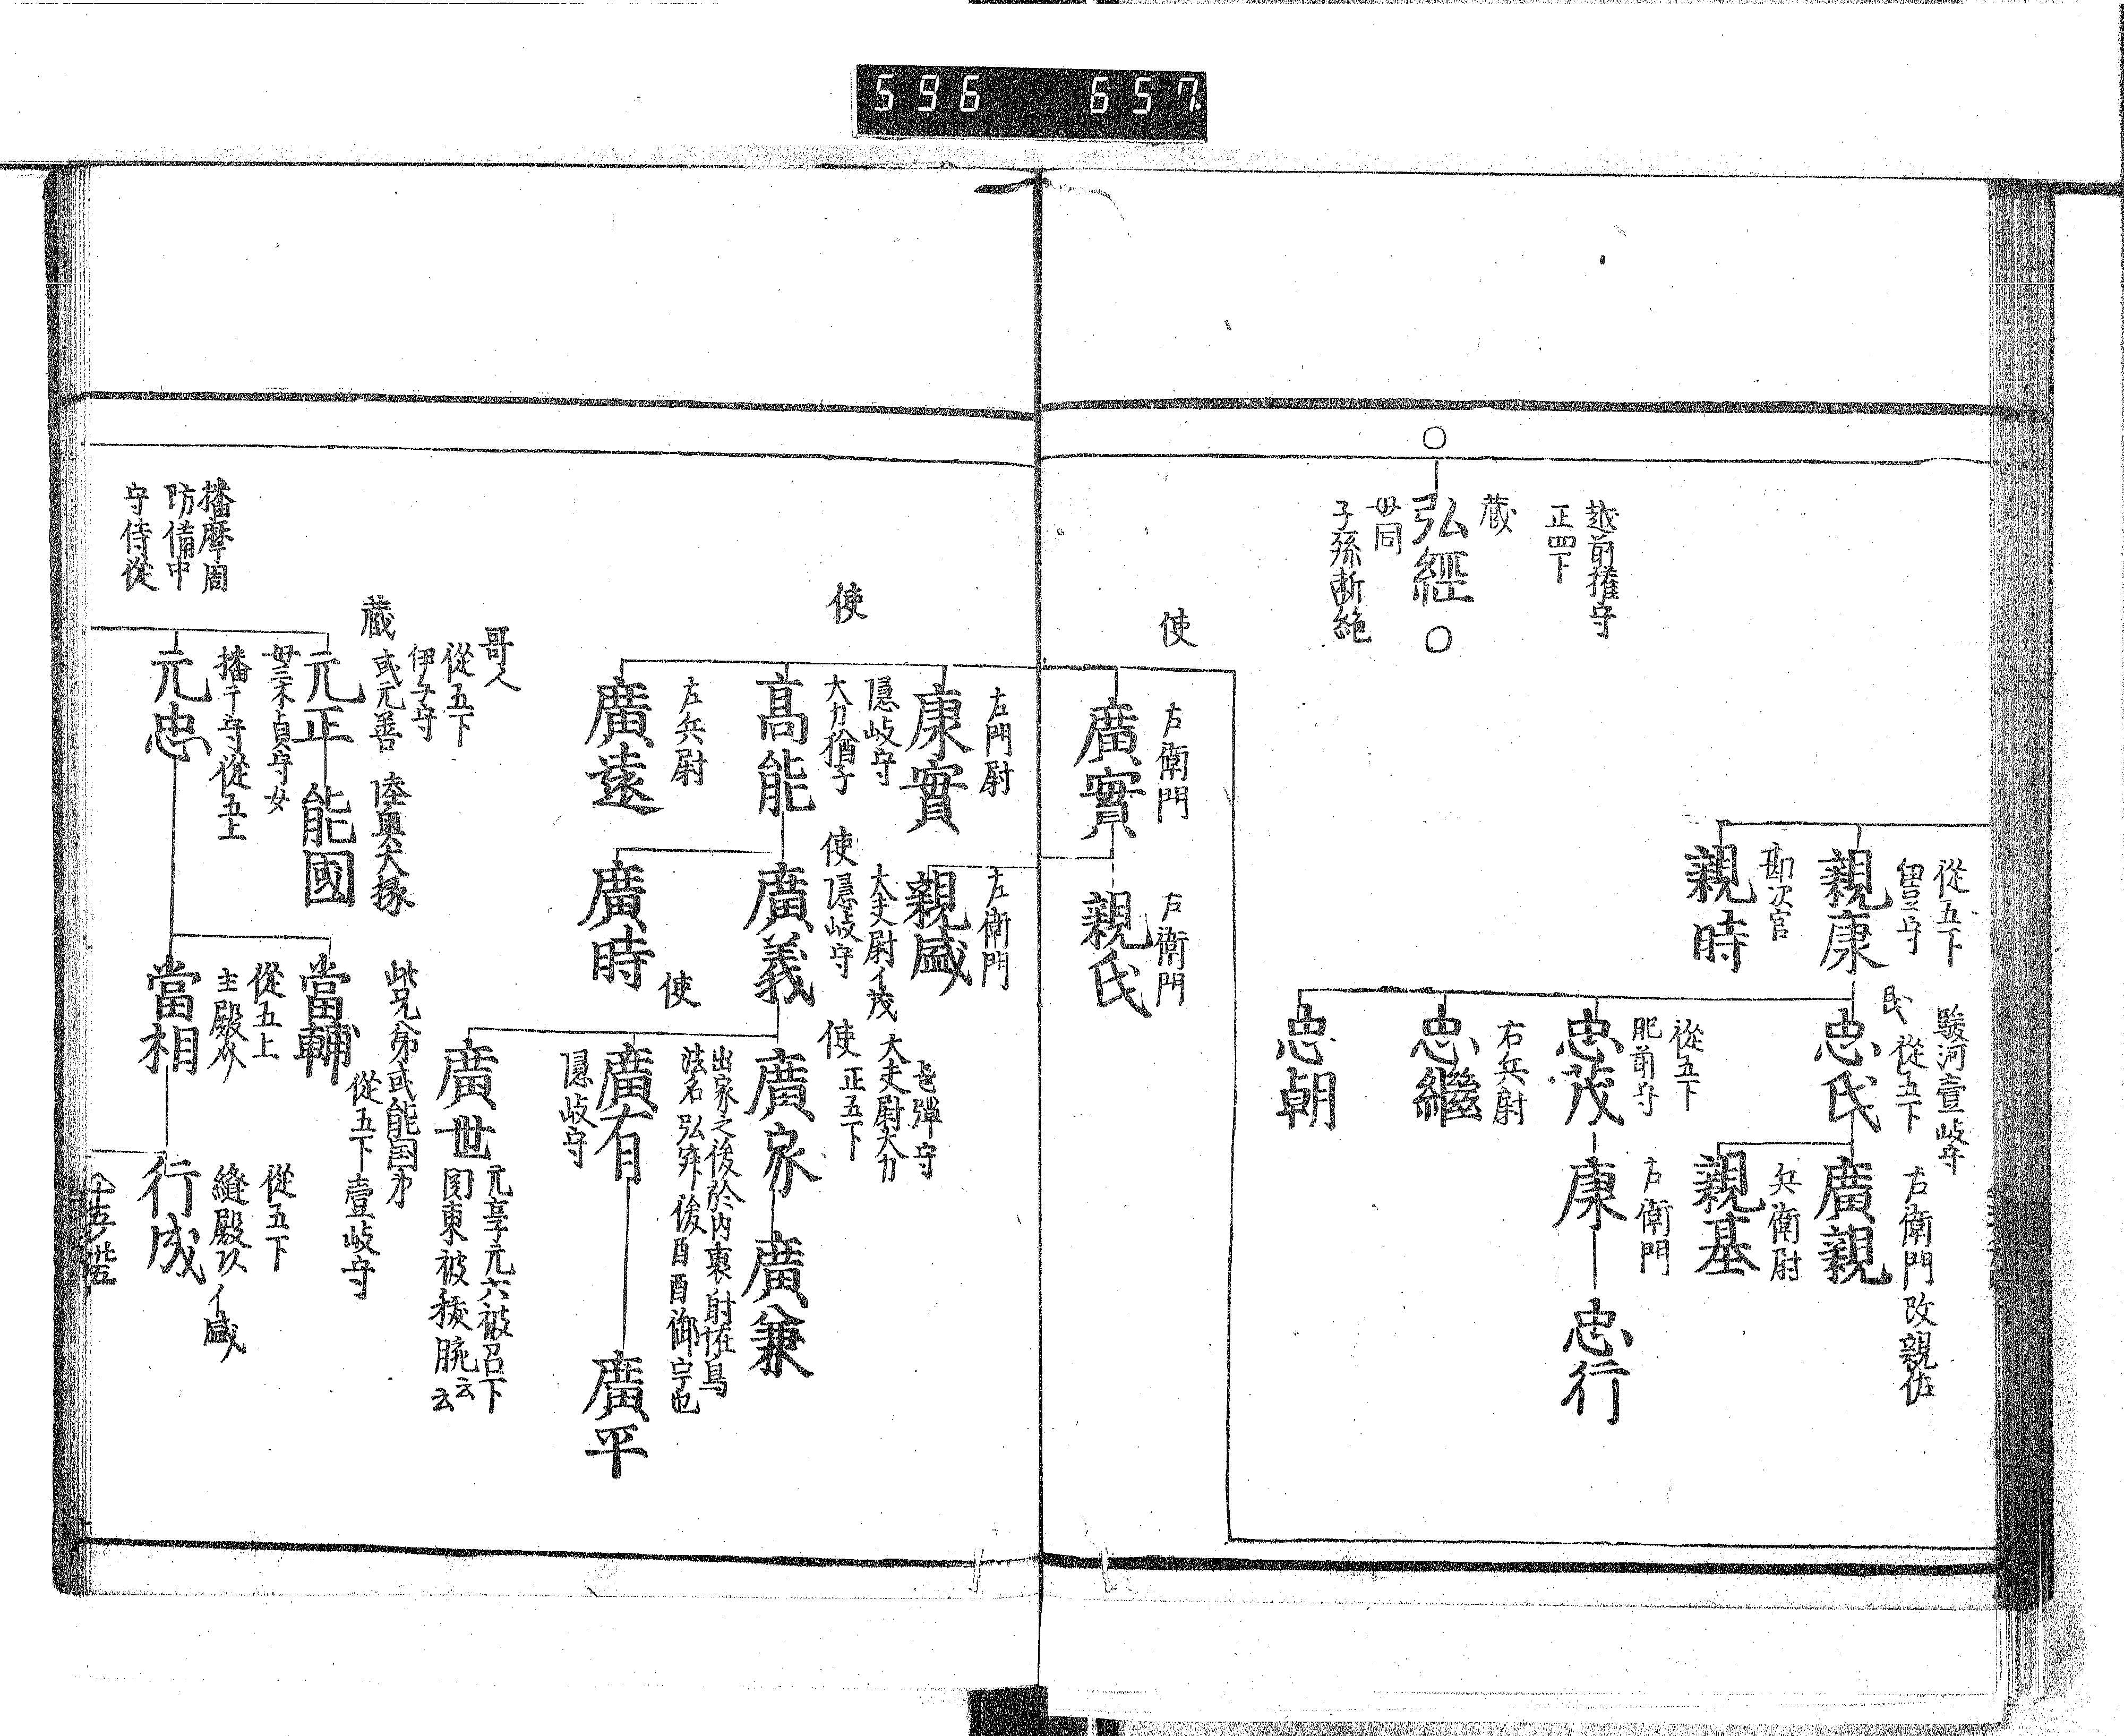 596 657
從五下
伊豆守
親康
勘次官
親時
駿河壹岐守
民 從五下
忠氏
從五下
肥前守
忠茂
右兵尉
忠繼
忠朝
右衛門改親佑
廣親
兵衛尉
親基
右衛門
康
忠行
越前権守
正四下
蔵
○
弘經
○
母同
子孫斷絶
使
右衛門
廣實
右衛門
親氏
左門尉
康實
左衛門
親盛
使
隠岐守
大力猶子
高能
左兵尉
廣遠
大夫尉イ茂
使 隠岐守
廣義
廣時
守
大夫尉大力
使 正五下
廣家
廣兼
出家之後於内裏射恠鳥
法名弘
使
廣有
隠岐守
廣平
廣世
元享元六被召下
関東被
云云
哥人
從五下
伊与守
蔵 或元善
元正
母三木貞守女
陸奥大掾
能國
播磨周
防備中
守侍從
播广守從五上
元忠
此兄弟或能国弟
從五下壹岐守
當輔
從五上
主殿
當相
從五下
縫殿 イ盛
行成
十五ノ廿五